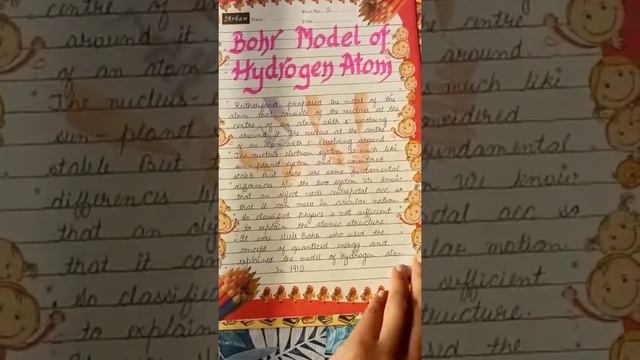 Bohr Model of
Hydrogen Atom
Rutherford proposed the model of the
atom that consists of the nucleus at the
centre of an atom with revolving
around it The nucleus at the centre
of an atom with revolving around
The nucleus-electron system is much like
sun-planet system and is considered
stable But there are some fundamental
differences b/w the two system We know
that an object needs centripetal acc so
that it can move in circular motion.
So classified physics is not sufficient
to explain the atomic structure.
It was Niels Bohr who used the
concept of quantized energy and
explained the model of Hydrogen atom
In 1913